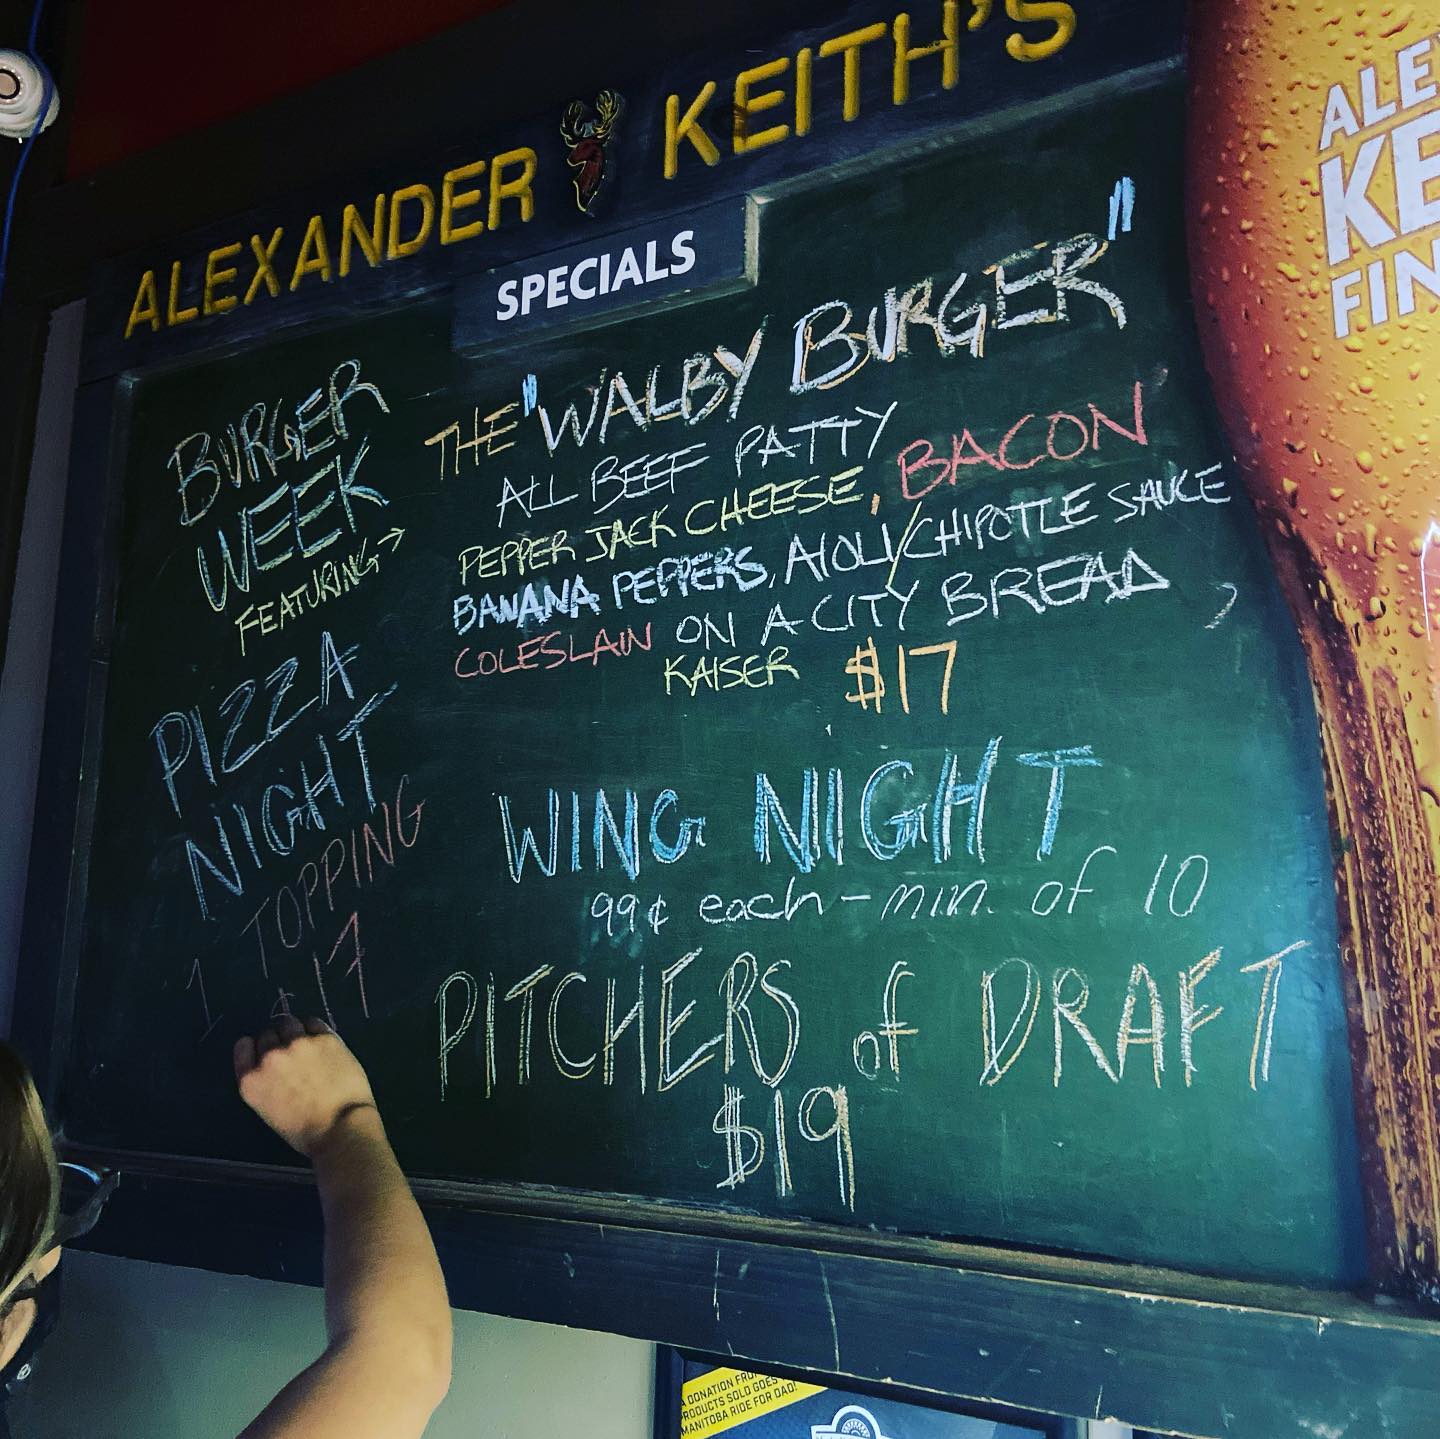 ALEXANDER KEITH'S
SPECIALS
BURGER
WEEK
FEATURING→
THE "WALBY BURGER"
ALL BEEF PATTY
PEPPER JACK CHEESE, BACON
BANANA PEPPERS, AIOLI/CHIPOTLE SAUCE
COLESLAW ON A CITY BREAD
KAISER $17
PIZZA
NIGHT
1 TOPPING
$17
WING NIGHT
99¢ each - min. of 10
PITCHERS of DRAFT
$19
ALE
KE
FIN
A DONATION FRO
PRODUCTS SOLD GOES
MANITOBA RIDE FOR DAD!